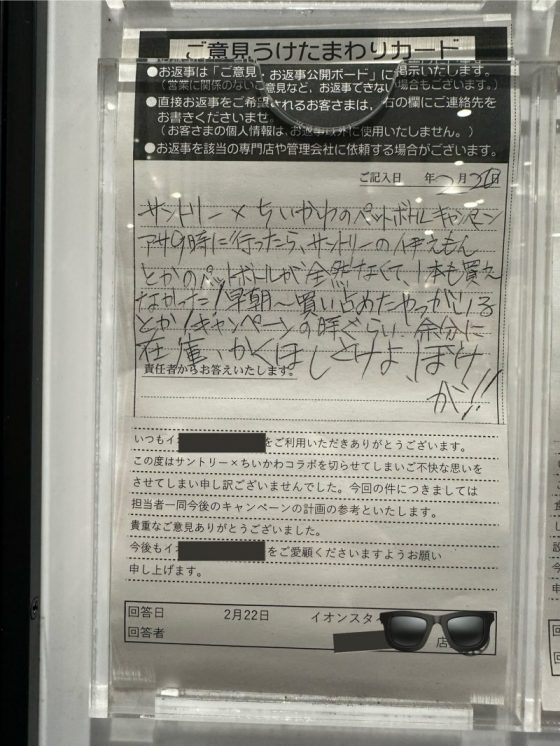 ご意見うけたまわりカード
●お返事は「ご意見・お返事公開ボード」に掲示いたします。
(営業に関係のないご意見など、お返事できない場合もございます。)
●直接お返事をご希望されるお客さまは、右の欄にご連絡先を
お書きくださいませ
(お客さまの個人情報は、お返事以外に使用いたしません。)
●お返事を該当の専門店や管理会社に依頼する場合がございます。
ご記入日 年 2月 日
サントリー×ちいかわのペットボトルキャンペーン
朝9時に行ったら、サントリーの伊えもん
とかのペットボトルが全然なくて、1本も買え
なかった!早朝〜買い占めたやつがいる
とか!キャンペーンの時ぐらい余分に
在庫、かくほしとけよ、ぼけ
が!!
責任者からお答えいたします。
いつもイオ をご利用いただきありがとうございます。
この度はサントリー×ちいかわコラボを切らせてしまいご不快な思いを
させてしまい申し訳ございませんでした。今回の件につきましては
担当者一同今後のキャンペーンの計画の参考といたします。
貴重なご意見ありがとうございました。
今後もイオ をご愛顧くださいますようお願い
申し上げます。
回答日 2月22日 イオンスタイ
回答者 店